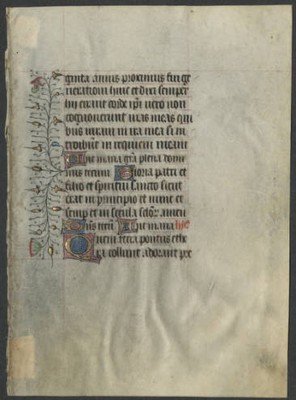 ginta annis proximus fui ge
neration huic et dixi semper
hii errant corde ipi vero non
cognoverunt vias meas qui
bus iuravi in ira mea si in
troibunt in requiem meam
Ave maria gra plena domi
nus tecum Gloria patri et
filio et spiritui sancto sicut
erat in principio et nunc et
semp et in secula sclor amen
nus tecu Ave maria
Quem terra pontus ethe
ra collunt adorant pre